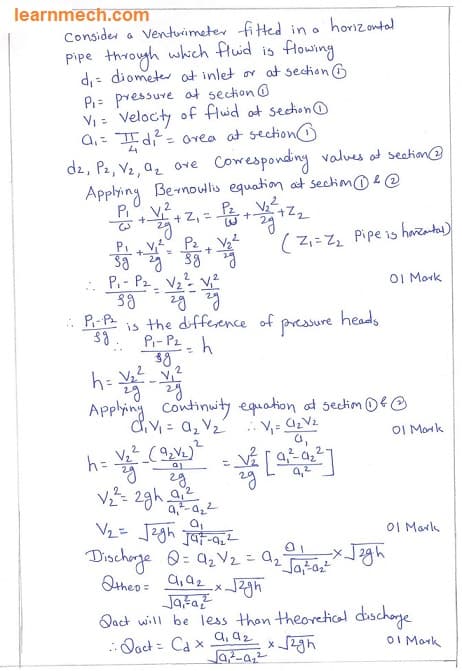 learnmech.com
Consider a Venturimeter fitted in a horizontal
pipe through which fluid is flowing
d₁ = diameter at inlet or at section ①
P₁ = pressure at section ①
V₁ = Velocity of fluid at section ①
a₁ = π/4 d₁² = area at section ①
d₂, P₂, V₂, a₂ are corresponding values at section ②
Applying Bernoullis equation at section ① & ②
P₁/ω + V₁²/2g + Z₁ = P₂/ω + V₂²/2g + Z₂
P₁/ρg + V₁²/2g = P₂/ρg + V₂²/2g (Z₁ = Z₂ Pipe is horizontal)
∴ P₁ - P₂/ρg = V₂²/2g - V₁²/2g 01 Mark
∴ P₁-P₂/ρg is the difference of pressure heads
∴ P₁-P₂/ρg = h
h = V₂²/2g - V₁²/2g
Applying Continuity equation at section ① & ②
a₁V₁ = a₂V₂ ∴ V₁ = a₂V₂/a₁ 01 Mark
h = V₂²/2g - (a₂V₂/a₁)²/2g = V₂²/2g [a₁²-a₂²/a₁²]
V₂² = 2gh a₁²/a₁²-a₂²
V₂ = √2gh a₁/√a₁²-a₂² 01 Mark
Discharge Q = a₂V₂ = a₂ a₁/√a₁²-a₂² × √2gh
Qtheo = a₁a₂/√a₁²-a₂² × √2gh
Qact will be less than theoretical discharge
∴ Qact = Cd × a₁a₂/√a₁²-a₂² × √2gh 01 Mark